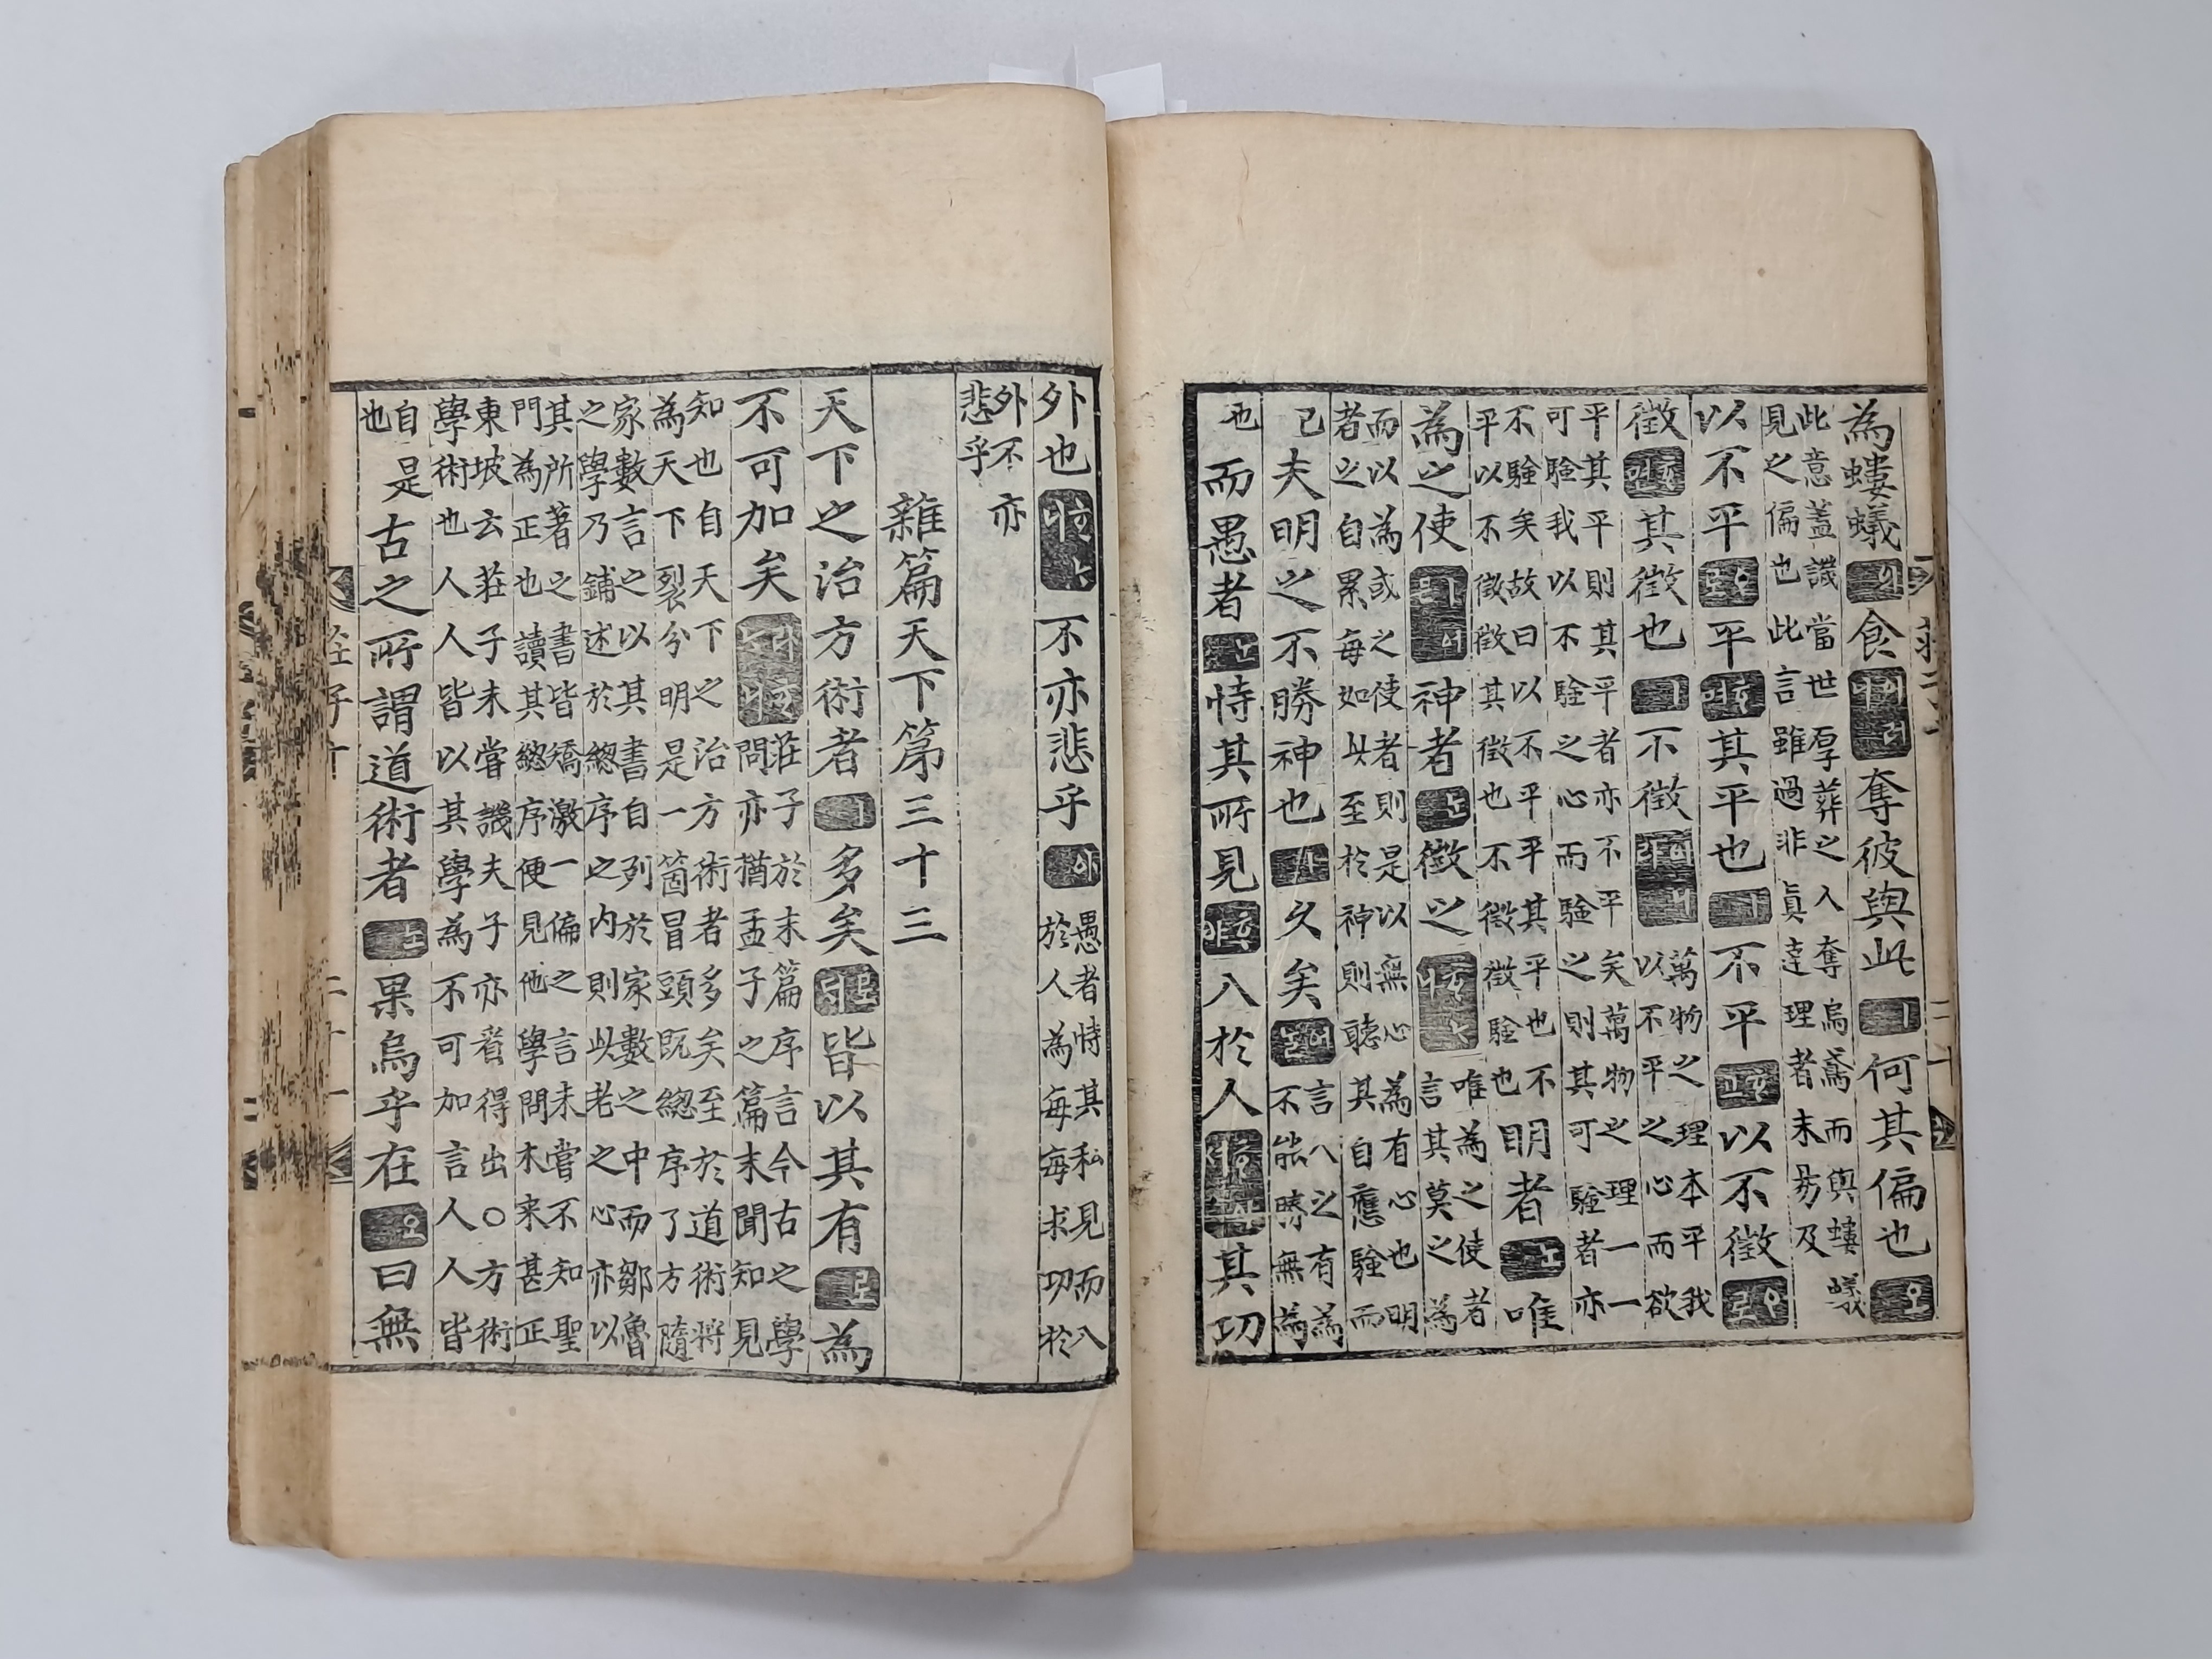 為螻蟻의食奪彼與此ㅣ何其偏也오
此意蓋譏當世厚葬之人奪烏鳶而與螻蟻
見之偏也此言雖過非眞達理者未易及
以不平平其平也ㅣ不平以不徵
徵其徵也ㅣ不徵
萬物之理本平我
以不平之心而欲
平其平則其平者亦不平矣萬物之理一一
可驗我以不驗之心而驗之則其可驗者亦
不驗矣故曰以不平平其平也不
平以不徵徵其徵也不徵徵驗也
明者는唯
為之使神者는徵之
唯為之使者
言其莫之為
而以為或之使者則是以無心為有心也明
者之自累每如此至於神則聽其自應驗而
已
夫明之不勝神也ㅣ久矣어늘
言人之有為
不能勝無為
也
而愚者는恃其所見하야入於人其功
外也하니不亦悲乎아
愚者恃其私見而入
於人為每每求功於
外不亦
悲乎
雜篇天下第三十三
天下之治方術者ㅣ多矣로되皆以其有로為
不可加矣
莊子於末篇序言今古之學
問亦猶孟子之篇末聞知見
知也自天下之治方術者多矣至於道術將
為天下裂分明是一箇冒頭既總序了方隨
家數言之以其書自列於家數之中而鄒魯
之學乃鋪述於總序之內則此老之心亦以
其所著之書皆矯激一偏之言未嘗不知聖
門為正也讀其總序便見他學問本來甚正
東坡云莊子未嘗譏夫子亦看得出○方術
學術也人人皆以其學為不可加言人人皆
自
也
是古之所謂道術者는果烏乎在오曰無
莊子十
二十一